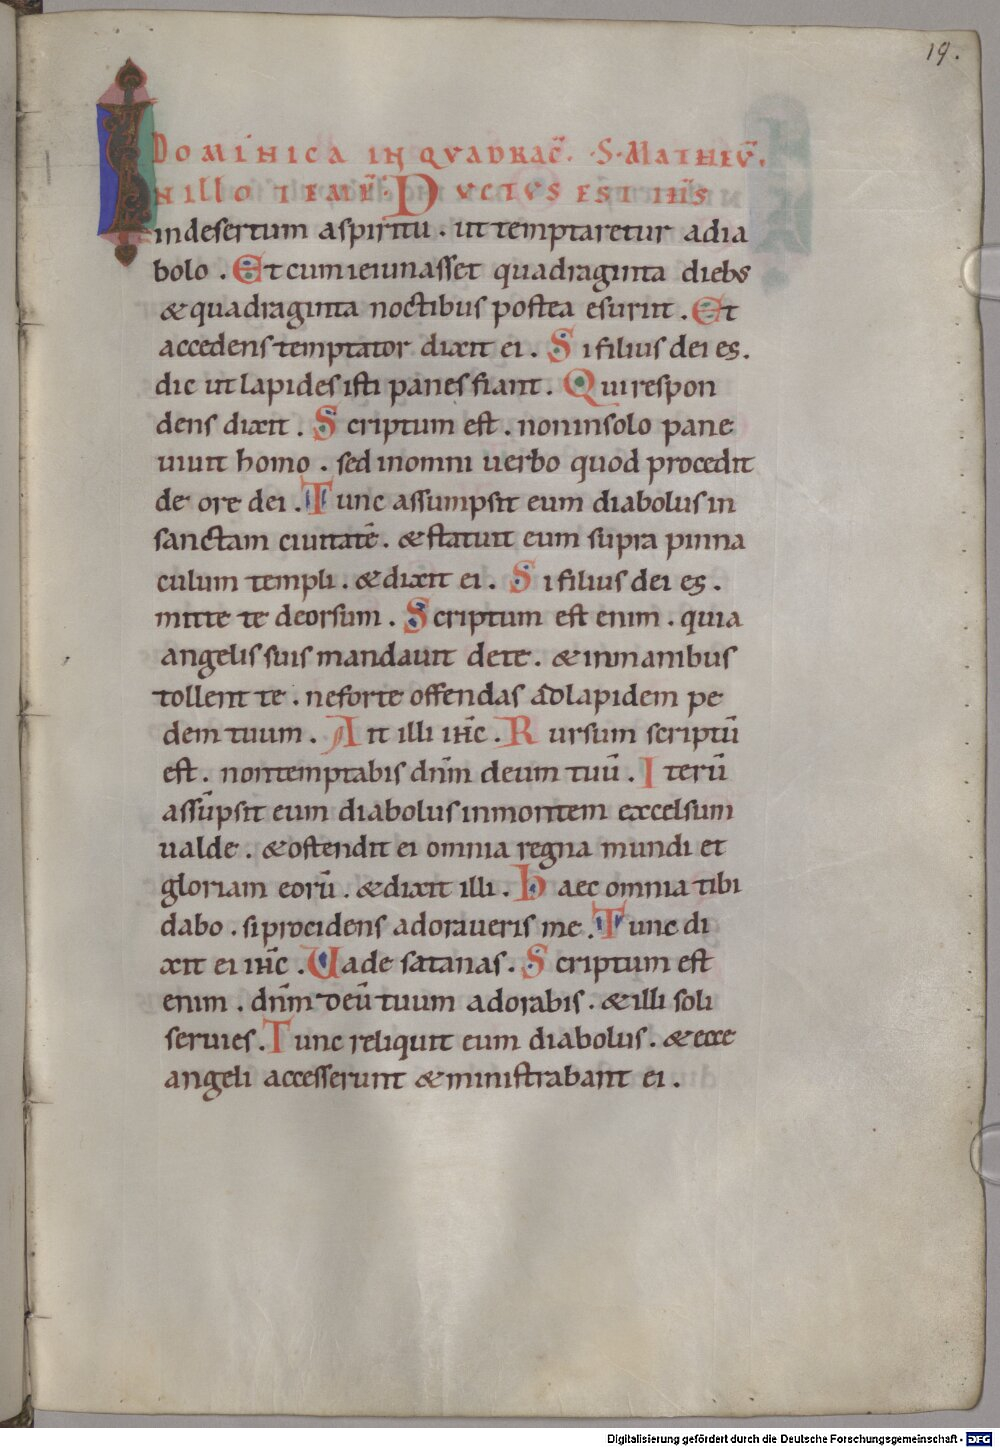 19.
DOMINICA IN QVADRAG̅. ·S·MATHEV̅.
IN ILLO TEMP̅. DVCTVS EST IH̅S
in desertum aspiritu . ut temptaretur adia
bolo . Et cum ieiunasset quadraginta diebs
& quadraginta noctibus postea esuriit . Et
accedens temptator dixit ei . Si filius dei es .
dic ut lapides isti panes fiant . Qui respon
dens dixit . Scriptum est . non insolo pane
uiuit homo . sed inomni uerbo quod procedit
de ore dei . Tunc assumpsit eum diabolus in
sanctam ciuitatē . & statuit eum supra pinna
culum templi . & dixit ei . Si filius dei es .
mitte te deorsum . Scriptum est enim . quia
angelis suis mandauit dete . & inmanibus
tollent te . neforte offendas adlapidem pe
dem tuum . Ait illi ih̅c . Rursum scriptū
est . non temptabis dn̅m deum tuū . Iterū
assūpsit eum diabolus inmontem excelsum
ualde . & ostendit ei omnia regna mundi et
gloriam eorū . & dixit illi . Haec omnia tibi
dabo . si procidens adoraueris me . Tunc di
xit ei ih̅c . Uade satanas . Scriptum est
enim . dn̅m deū tuum adorabis . & illi soli
seruies . Tunc reliquit eum diabolus . & ecce
angeli accesserunt & ministrabant ei .
Digitalisierung gefördert durch die Deutsche Forschungsgemeinschaft - DFG